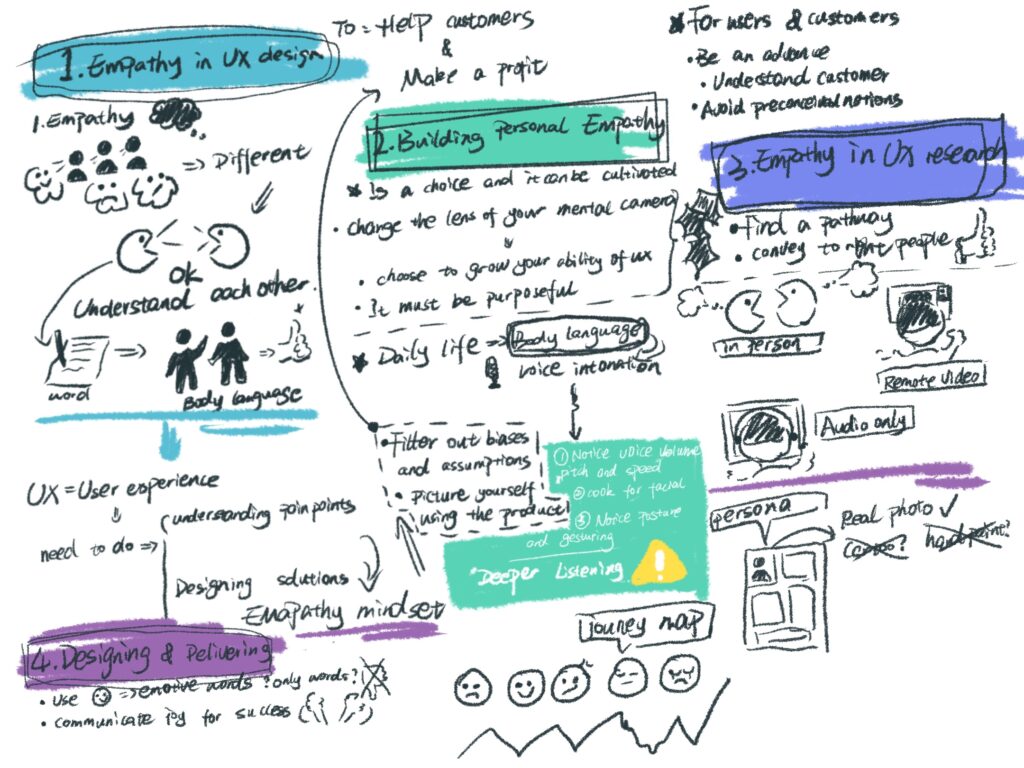 1. Empathy in UX design
1. Empathy
=> Different
OK
Understand each other.
word
Body language
UX = User experience
need to do =>
understanding pain points
Designing solutions
EMapathy mindset
4. Designing & Delivering
• use => emotive words? only words?
• communicate joy for success
To = Help customers
&
Make a profit
2. Building Personal Empathy
* Is a choice and it can be cultivated
• change the lens of your mental camera
• choose to grow your ability of ux
• It must be purposeful
* Daily life => Body language
voice intonation
• Filter out biases
and assumptions
• Picture yourself
using the product
① Notice voice volume
pitch and speed
② Look for facial
③ Notice posture
and gesturing
* Deeper Listening
jouney map
* For users & customers
• Be an advance
• Understand customer
• Avoid preconceival notions
3. Empathy in UX research
• Find a pathway
• convey to right people
in person
Remote video
Audio only
persona
Real photo ✓